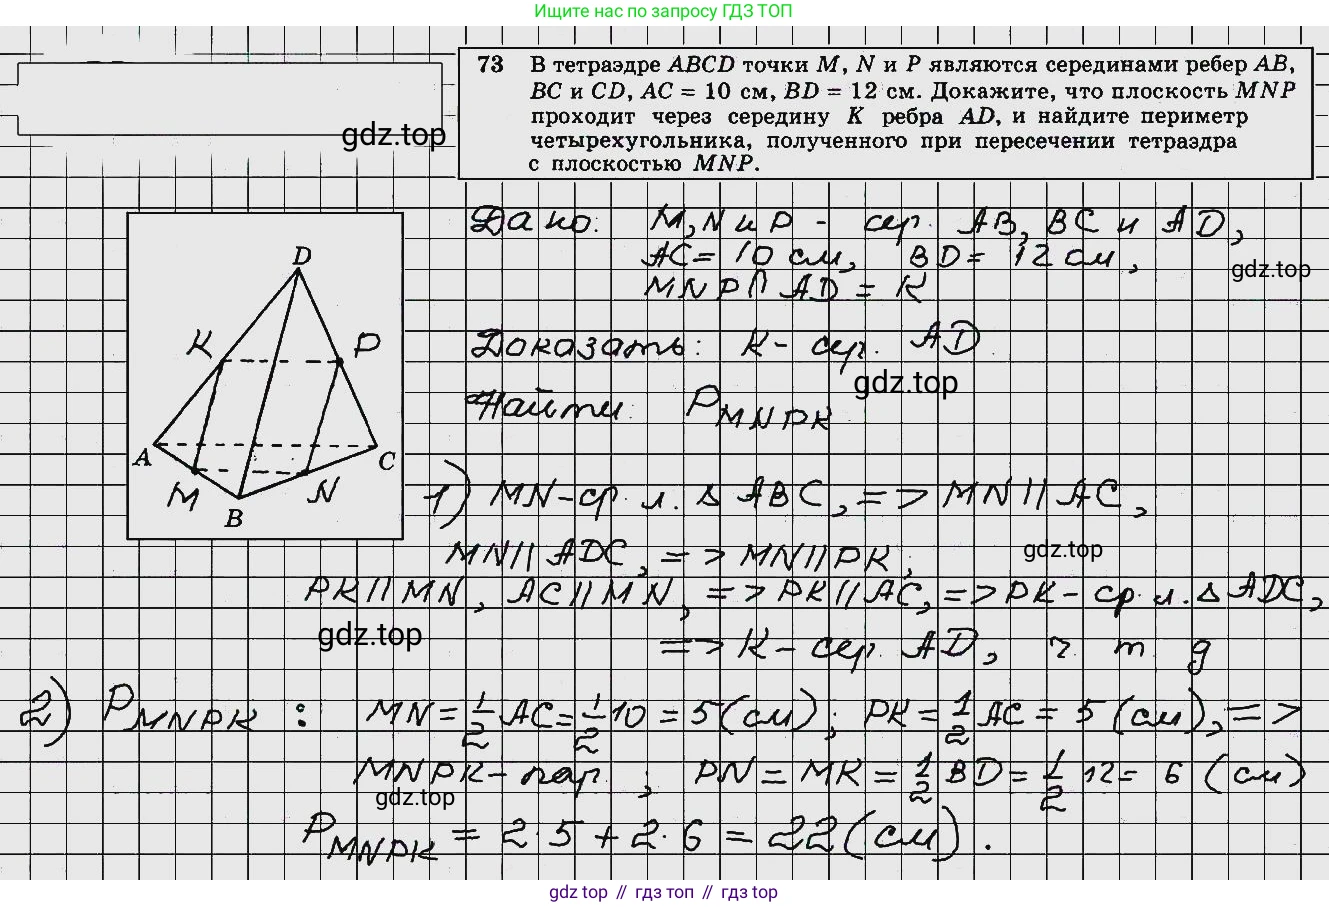 Ищите нас по запросу ГДЗ ТОП
73 В тетраэдре ABCD точки M, N и P являются серединами ребер AB,
BC и CD, AC = 10 см, BD = 12 см. Докажите, что плоскость MNP
проходит через середину K ребра AD, и найдите периметр
четырехугольника, полученного при пересечении тетраэдра
с плоскостью MNP.
gdz.top
Дано: M, N и P - сер. AB, BC и AD,
AC = 10 см, BD = 12 см,
gdz.top
MNP ∩ AD = K
Доказать: K - сер. AD
gdz.top
Найти: P MNPK
D
K
P
A
C
M
N
B
1) MN - ср. л. Δ ABC, => MN || AC,
MN || ADC, => MN || PK,
gdz.top
PK || MN, AC || MN, => PK || AC, => PK - ср. л. Δ ADC,
gdz.top
=> K - сер. AD, ч т д
2) P MNPK : MN = 1/2 AC = 1/2 10 = 5 (см); PK = 1/2 AC = 5 (см), =>
MNPK - пар.; PN = MK = 1/2 BD = 1/2 12 = 6 (см)
gdz.top
P MNPK = 2·5 + 2·6 = 22 (см).
gdz top // гдз топ // gdz top